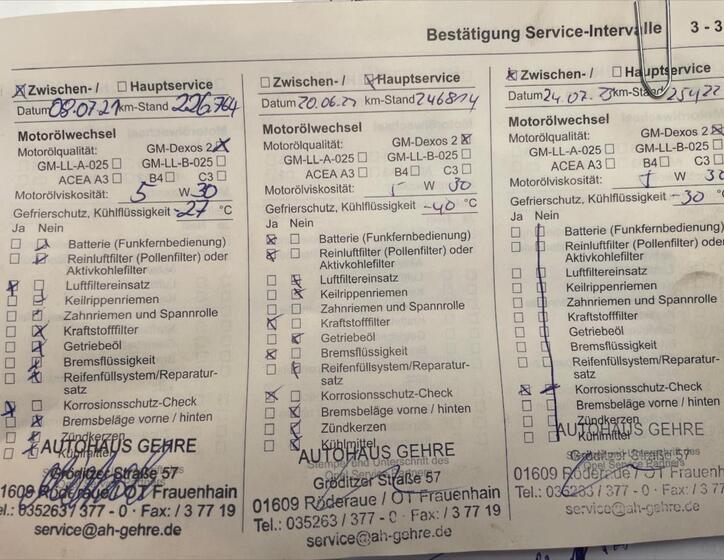 Bestätigung Service-Intervalle 3 - 3
Zwischen- / Hauptservice
Datum 08.07.21 km-Stand 226.764
Motorölwechsel
Motorölqualität: GM-Dexos 2
GM-LL-A-025 GM-LL-B-025
ACEA A3 B4 C3
Motorölviskosität: 5 W 30
Gefrierschutz, Kühlflüssigkeit -27 °C
Ja Nein
Batterie (Funkfernbedienung)
Reinluftfilter (Pollenfilter) oder
Aktivkohlefilter
Luftfiltereinsatz
Keilrippenriemen
Zahnriemen und Spannrolle
Kraftstofffilter
Getriebeöl
Bremsflüssigkeit
Reifenfüllsystem/Reparatur-
satz
Korrosionsschutz-Check
Bremsbeläge vorne / hinten
Zündkerzen
Kühlmittel
AUTOHAUS GEHRE
Gröditzer Straße 57
01609 Röderaue / OT Frauenhain
el.: 035263 / 377 - 0 · Fax: / 3 77 19
service@ah-gehre.de
Zwischen- / Hauptservice
Datum 20.06.22 km-Stand 246814
Motorölwechsel
Motorölqualität: GM-Dexos 2
GM-LL-A-025 GM-LL-B-025
ACEA A3 B4 C3
Motorölviskosität W 30
Gefrierschutz, Kühlflüssigkeit -40 °C
Ja Nein
Batterie (Funkfernbedienung)
Reinluftfilter (Pollenfilter) oder
Aktivkohlefilter
Luftfiltereinsatz
Keilrippenriemen
Zahnriemen und Spannrolle
Kraftstofffilter
Getriebeöl
Bremsflüssigkeit
Reifenfüllsystem/Reparatur-
satz
Korrosionsschutz-Check
Bremsbeläge vorne / hinten
Zündkerzen
Kühlmittel
AUTOHAUS GEHRE
Stempel und Unterschrift des
Gröditzer Straße 57
01609 Röderaue / OT Frauenhain
Tel.: 035263 / 377 - 0 · Fax: / 3 77 19
service@ah-gehre.de
Zwischen- / Hauptservice
Datum 24.07.23 km-Stand
Motorölwechsel
Motorölqualität: GM-Dexos 2
GM-LL-A-025 GM-LL-B-025
ACEA A3 B4 C3
Motorölviskosität W 30
Gefrierschutz, Kühlflüssigkeit -30 °C
Ja Nein
Batterie (Funkfernbedienung)
Reinluftfilter (Pollenfilter) oder
Aktivkohlefilter
Luftfiltereinsatz
Keilrippenriemen
Zahnriemen und Spannrolle
Kraftstofffilter
Getriebeöl
Bremsflüssigkeit
Reifenfüllsystem/Reparatur-
satz
Korrosionsschutz-Check
Bremsbeläge vorne / hinten
Zündkerzen
Kühlmittel
AUTOHAUS GEHRE
Stempel und Unterschrift des
Opel Service Partners
Gröditzer Straße 57
01609 Röderaue / OT Frauenhain
Tel.: 035263 / 377 - 0 · Fax: / 3 77 19
service@ah-gehre.de